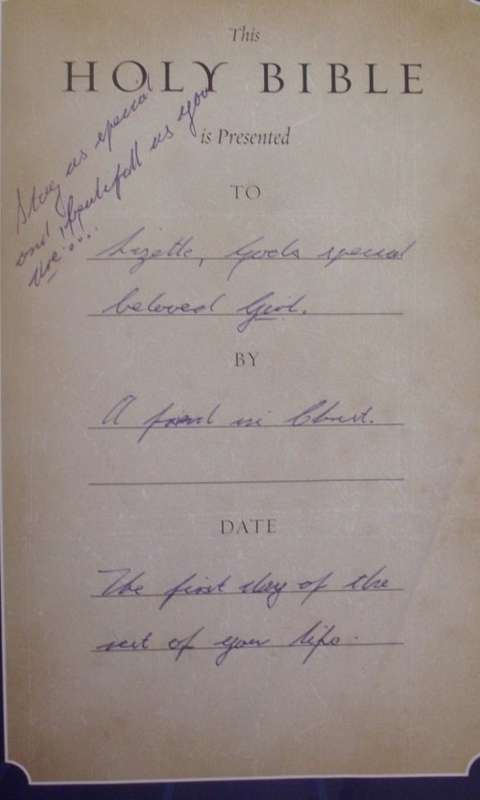 This
HOLY BIBLE
is Presented
Stay as special
and beautifull as you
are....
TO
Lizette, Gods special
beloved Girl.
BY
A friend in Christ.
DATE
The first day of the
rest of your life.